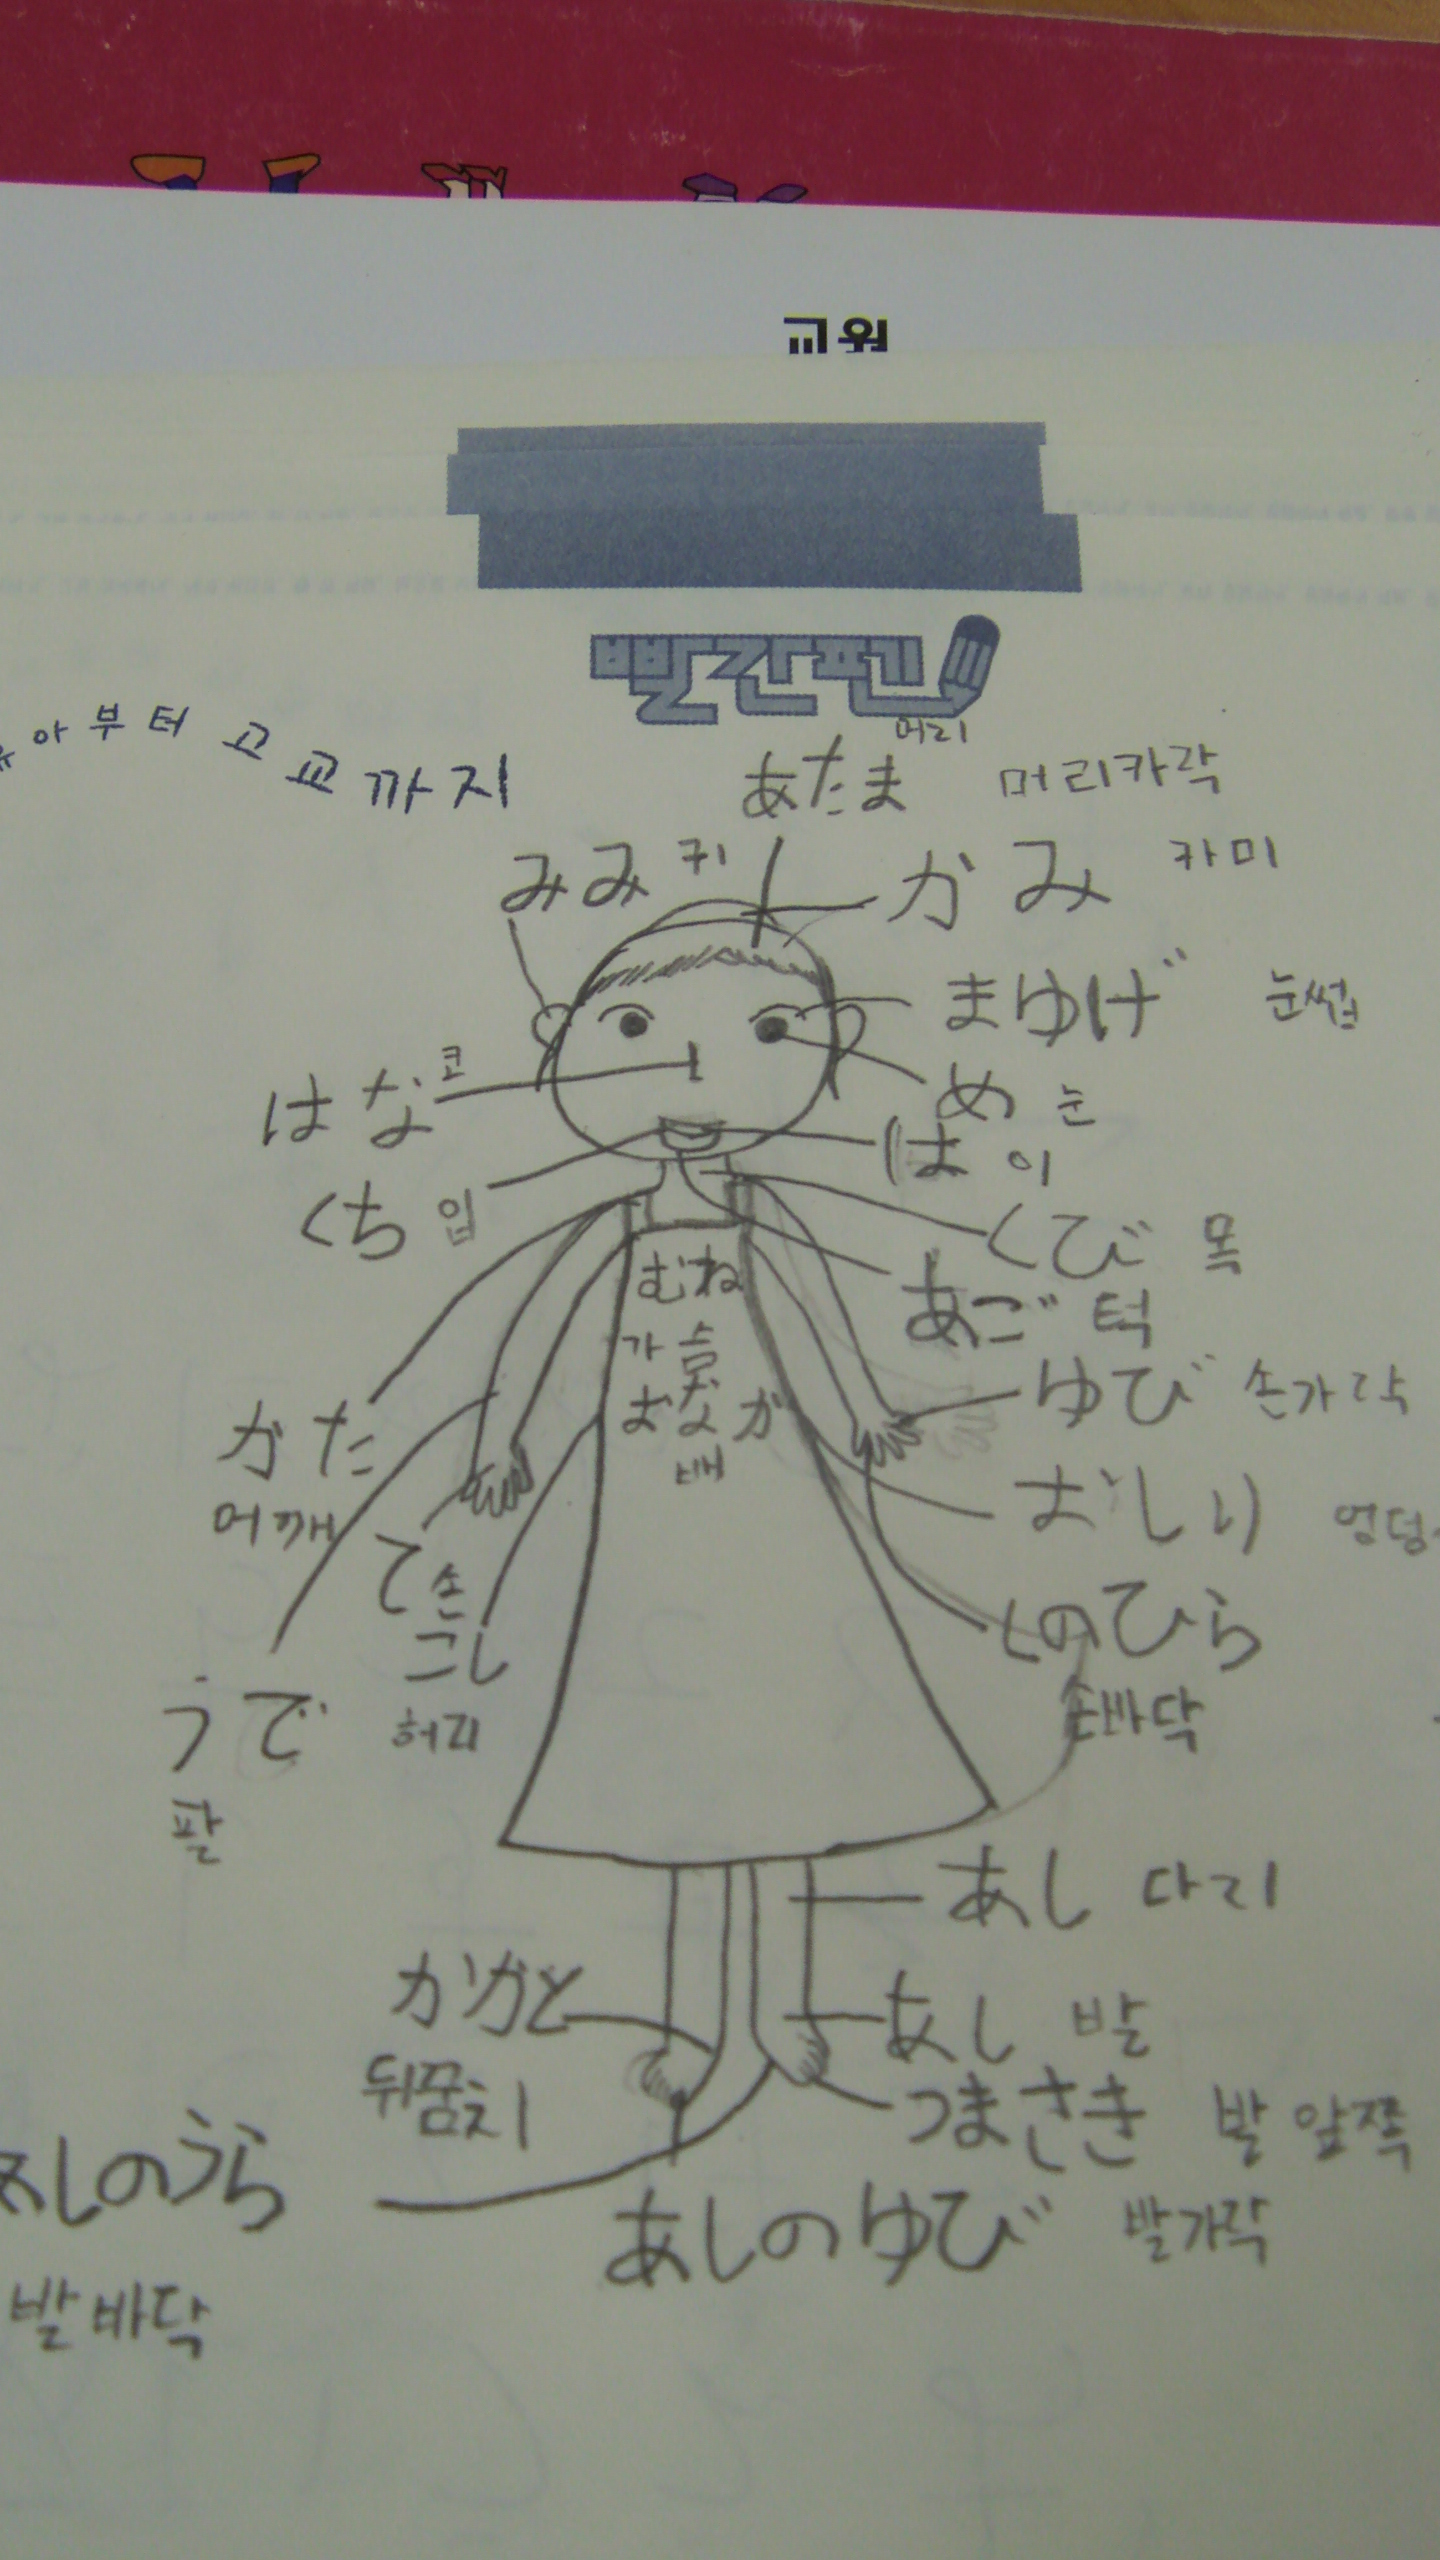 교원
빨간펜
아부터 고교까지
머리
あたま 머리카락
みみ 귀 かみ 카미
まゆげ 눈썹
はな 코 め 눈
は 이
くち 입 くび 목
むね あご 턱
가슴
ゆび 손가락
おなか
かた 배
어깨 おしり 엉덩
て 손
こし てのひら
うで 허리 손바닥
팔
あし 다리
かかと あし 발
뒤꿈치 つまさき 발 앞쪽
あしのうら
あしのゆび 발가락
발바닥